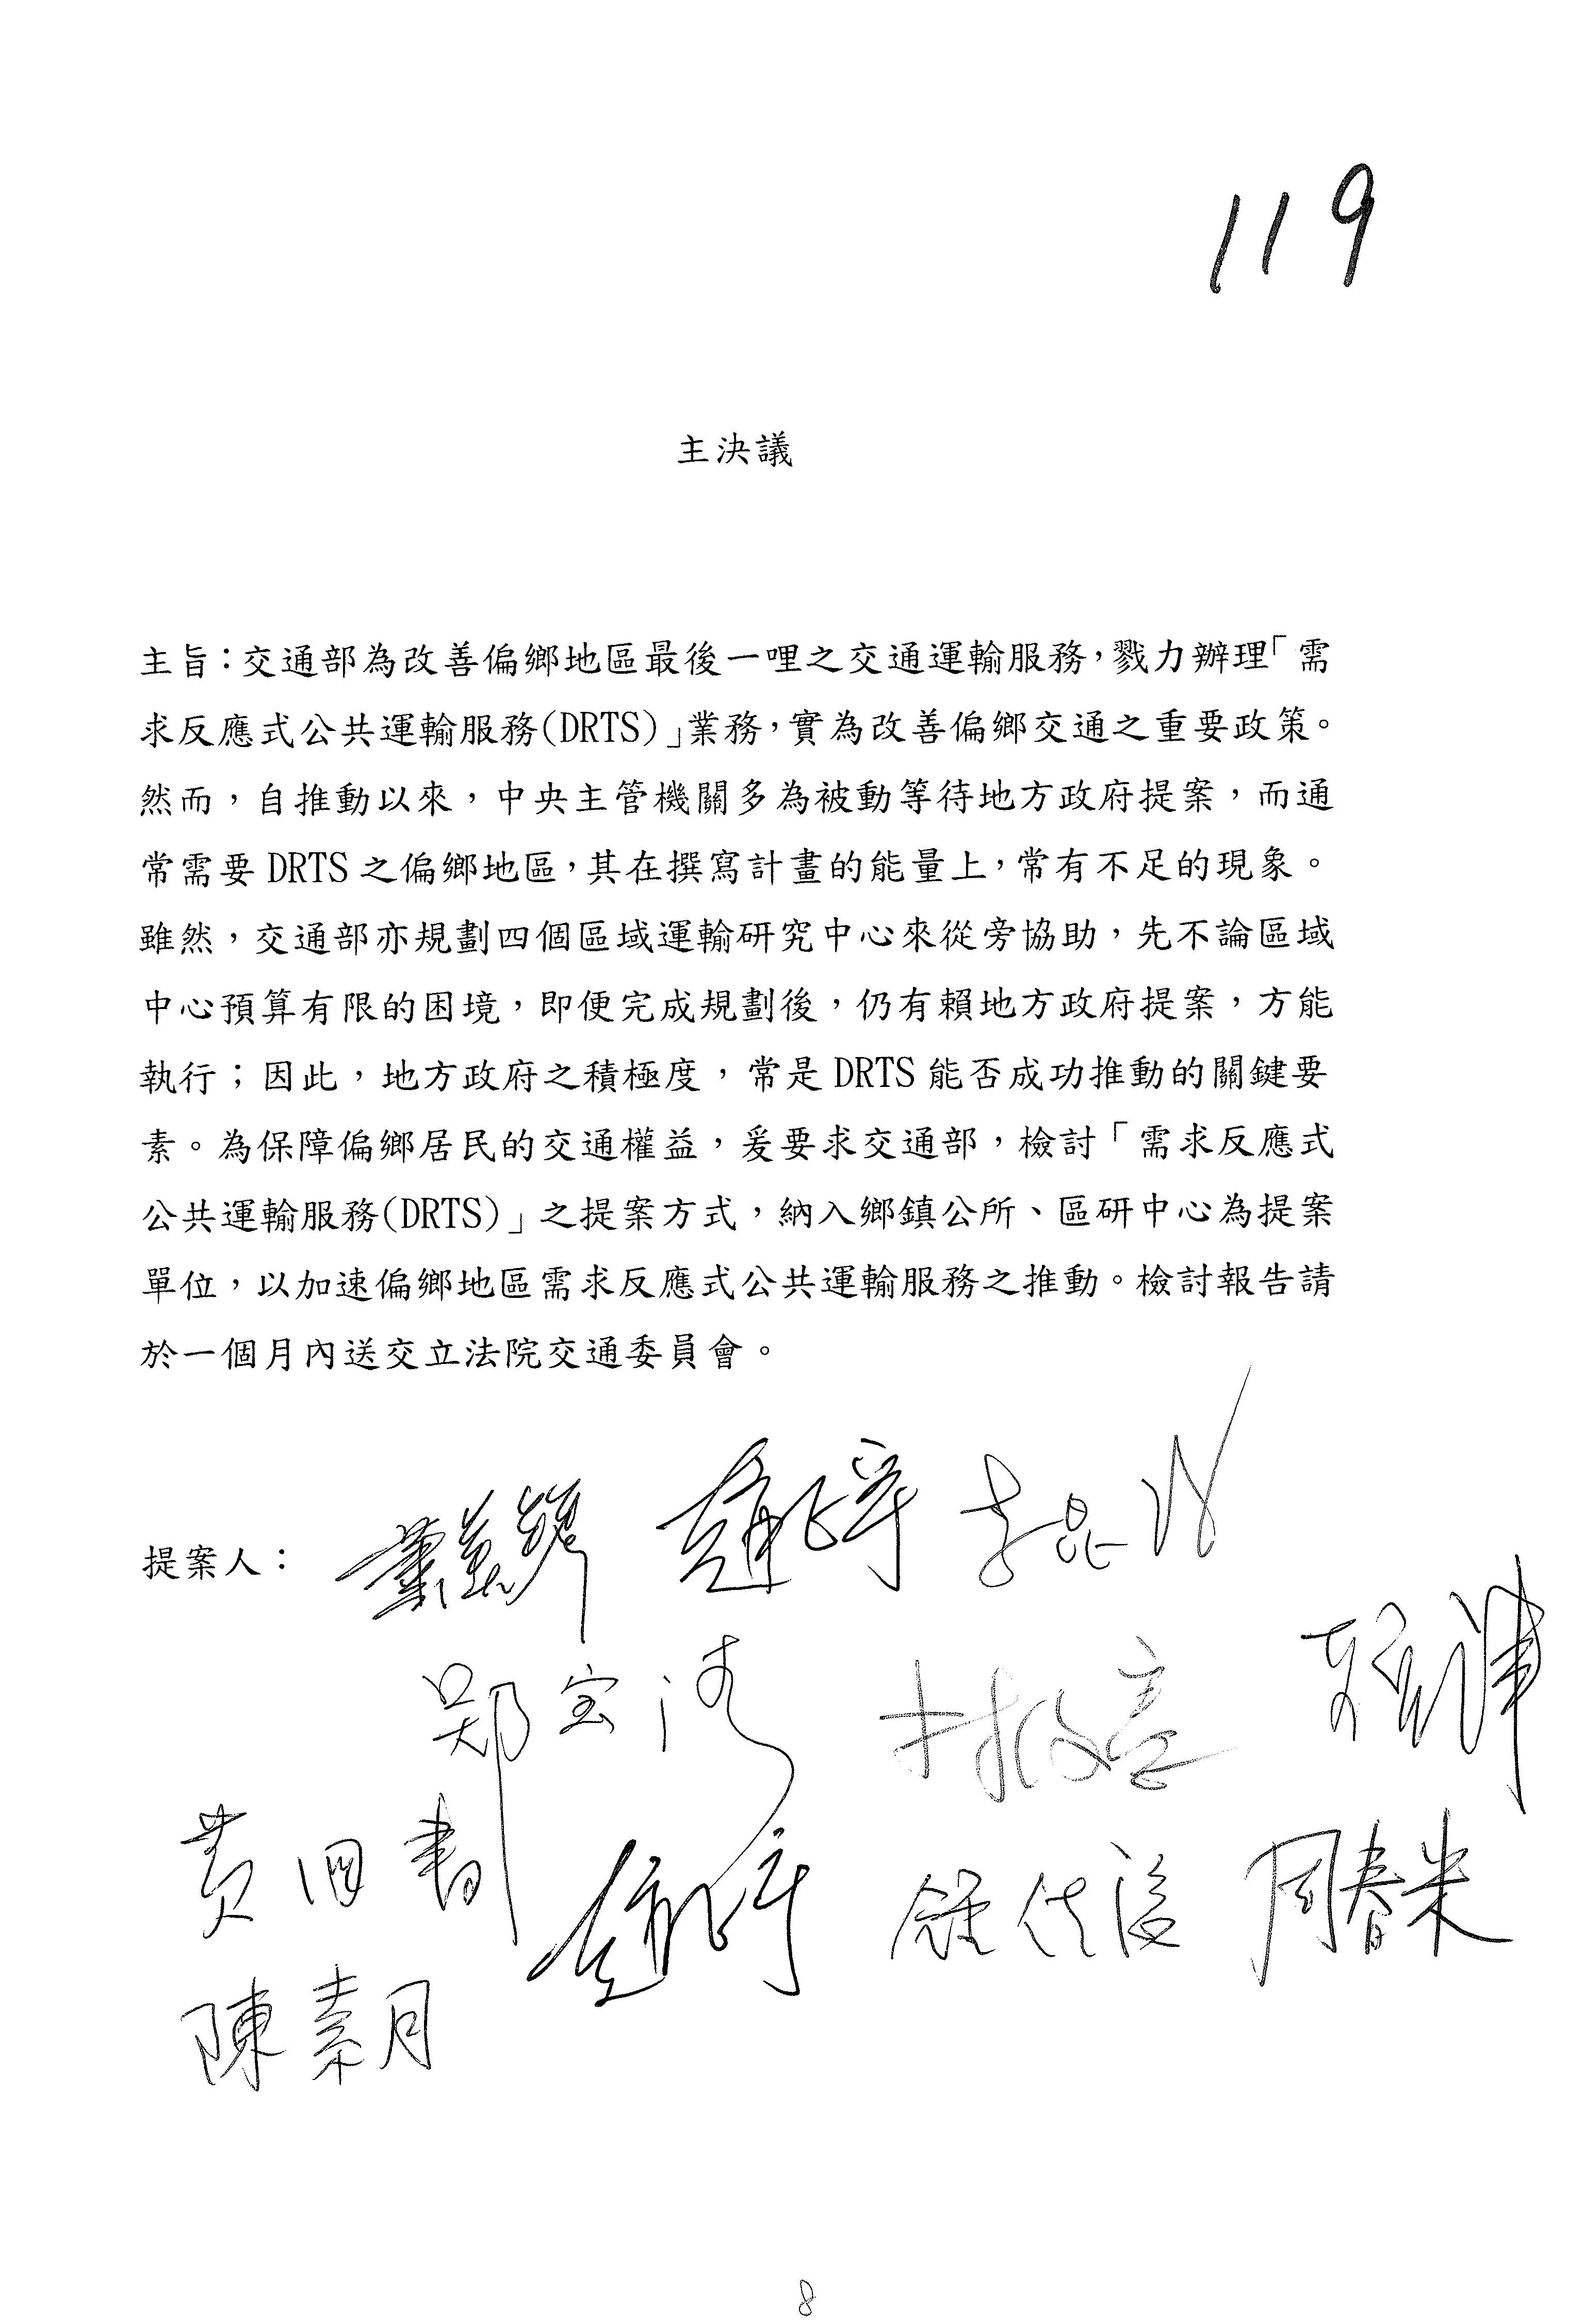 119
主決議
主旨：交通部為改善偏鄉地區最後一哩之交通運輸服務，戮力辦理「需
求反應式公共運輸服務(DRTS)」業務，實為改善偏鄉交通之重要政策。
然而，自推動以來，中央主管機關多為被動等待地方政府提案，而通
常需要 DRTS 之偏鄉地區，其在撰寫計畫的能量上，常有不足的現象。
雖然，交通部亦規劃四個區域運輸研究中心來從旁協助，先不論區域
中心預算有限的困境，即便完成規劃後，仍有賴地方政府提案，方能
執行；因此，地方政府之積極度，常是 DRTS 能否成功推動的關鍵要
素。為保障偏鄉居民的交通權益，爰要求交通部，檢討「需求反應式
公共運輸服務(DRTS)」之提案方式，納入鄉鎮公所、區研中心為提案
單位，以加速偏鄉地區需求反應式公共運輸服務之推動。檢討報告請
於一個月內送交立法院交通委員會。
提案人： 李昆
鄭宝清 林俊言
黃国書 鍾佳濱 周春米
陳素月
8